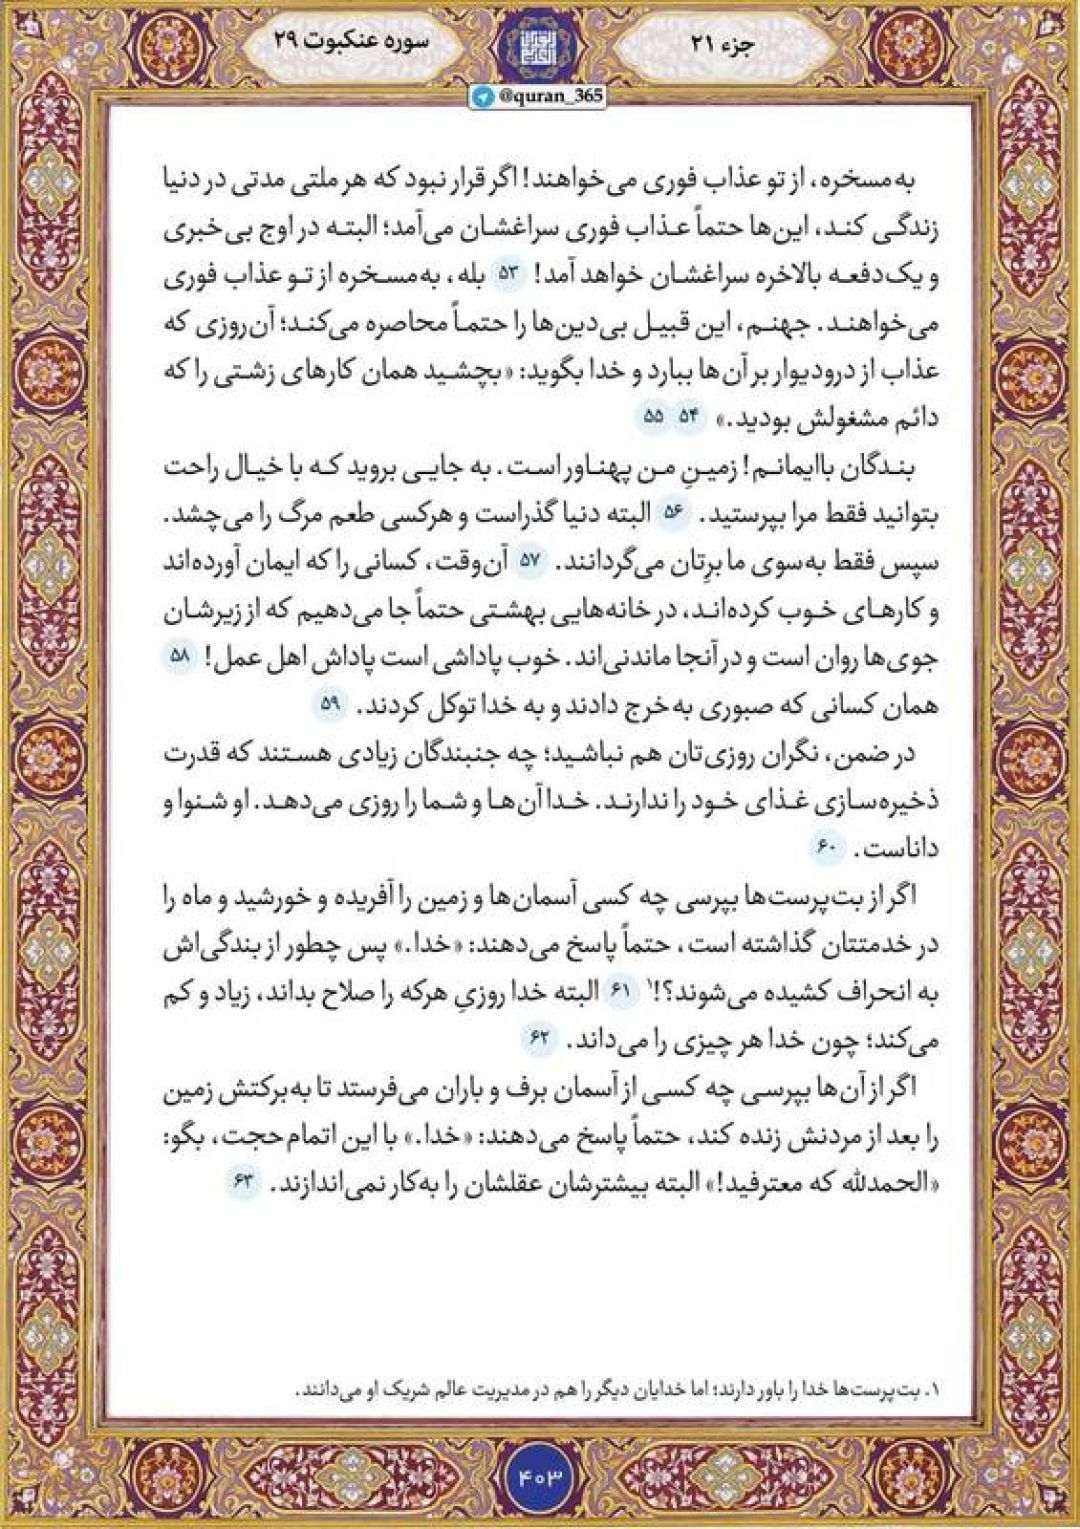 جزء ۲۱
سوره عنکبوت ۲۹
@quran_365
به‌مسخره، از تو عذاب فوری می‌خواهند! اگر قرار نبود که هر ملتی مدتی در دنیا
زندگی کند، این‌ها حتماً عذاب فوری سراغشان می‌آمد؛ البته در اوج بی‌خبری
و یک‌دفعه بالاخره سراغشان خواهد آمد! ۵۳ بله، به‌مسخره از تو عذاب فوری
می‌خواهند. جهنم، این قبیل بی‌دین‌ها را حتماً محاصره می‌کند؛ آن‌روزی که
عذاب از درودیوار بر آن‌ها ببارد و خدا بگوید: «بچشید همان کارهای زشتی را که
دائم مشغولش بودید.» ۵۴ ۵۵
بندگان باایمانم! زمینِ من پهناور است. به جایی بروید که با خیال راحت
بتوانید فقط مرا بپرستید. ۵۶ البته دنیا گذراست و هرکسی طعم مرگ را می‌چشد.
سپس فقط به‌سوی ما برِتان می‌گردانند. ۵۷ آن‌وقت، کسانی را که ایمان آورده‌اند
و کارهای خوب کرده‌اند، در خانه‌هایی بهشتی حتماً جا می‌دهیم که از زیرشان
جوی‌ها روان است و در آنجا ماندنی‌اند. خوب پاداشی است پاداش اهل عمل! ۵۸
همان کسانی که صبوری به‌خرج دادند و به خدا توکل کردند. ۵۹
در ضمن، نگران روزی‌تان هم نباشید؛ چه جنبندگان زیادی هستند که قدرت
ذخیره‌سازی غذای خود را ندارند. خدا آن‌ها و شما را روزی می‌دهد. او شنوا و
داناست. ۶۰
اگر از بت‌پرست‌ها بپرسی چه کسی آسمان‌ها و زمین را آفریده و خورشید و ماه را
در خدمتتان گذاشته است، حتماً پاسخ می‌دهند: «خدا.» پس چطور از بندگی‌اش
به انحراف کشیده می‌شوند؟!۱ ۶۱ البته خدا روزیِ هرکه را صلاح بداند، زیاد و کم
می‌کند؛ چون خدا هر چیزی را می‌داند. ۶۲
اگر از آن‌ها بپرسی چه کسی از آسمان برف و باران می‌فرستد تا به‌برکتش زمین
را بعد از مردنش زنده کند، حتماً پاسخ می‌دهند: «خدا.» با این اتمام‌حجت، بگو:
«الحمدلله که معترفید!» البته بیشترشان عقلشان را به‌کار نمی‌اندازند. ۶۳
۱. بت‌پرست‌ها خدا را باور دارند؛ اما خدایان دیگر را هم در مدیریت عالم شریک او می‌دانند.
۴۰۳